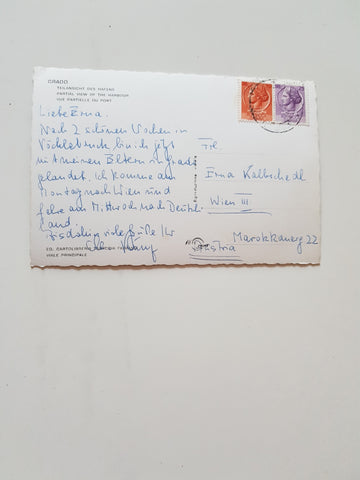 GRADO
TEILANSICHT DES HAFENS
PARTIAL VIEW OF THE HARBOUR
VUE PARTIELLE DU PORT
Liebe Erna.
Nach 2 schönen Wochen in
Vöcklabruck bin ich jetzt
mit meinen Eltern in Grado
gelandet. Ich komme am
Montag nach Wien und
fahre am Mittwoch nach Deutsch-
land
viele Grüße Ihr
ED. CARTOLIBRERIA
VIALE PRINCIPALE
Frl
Erna Kaltschedl
Wien III
Marokkanerg 22
Austria